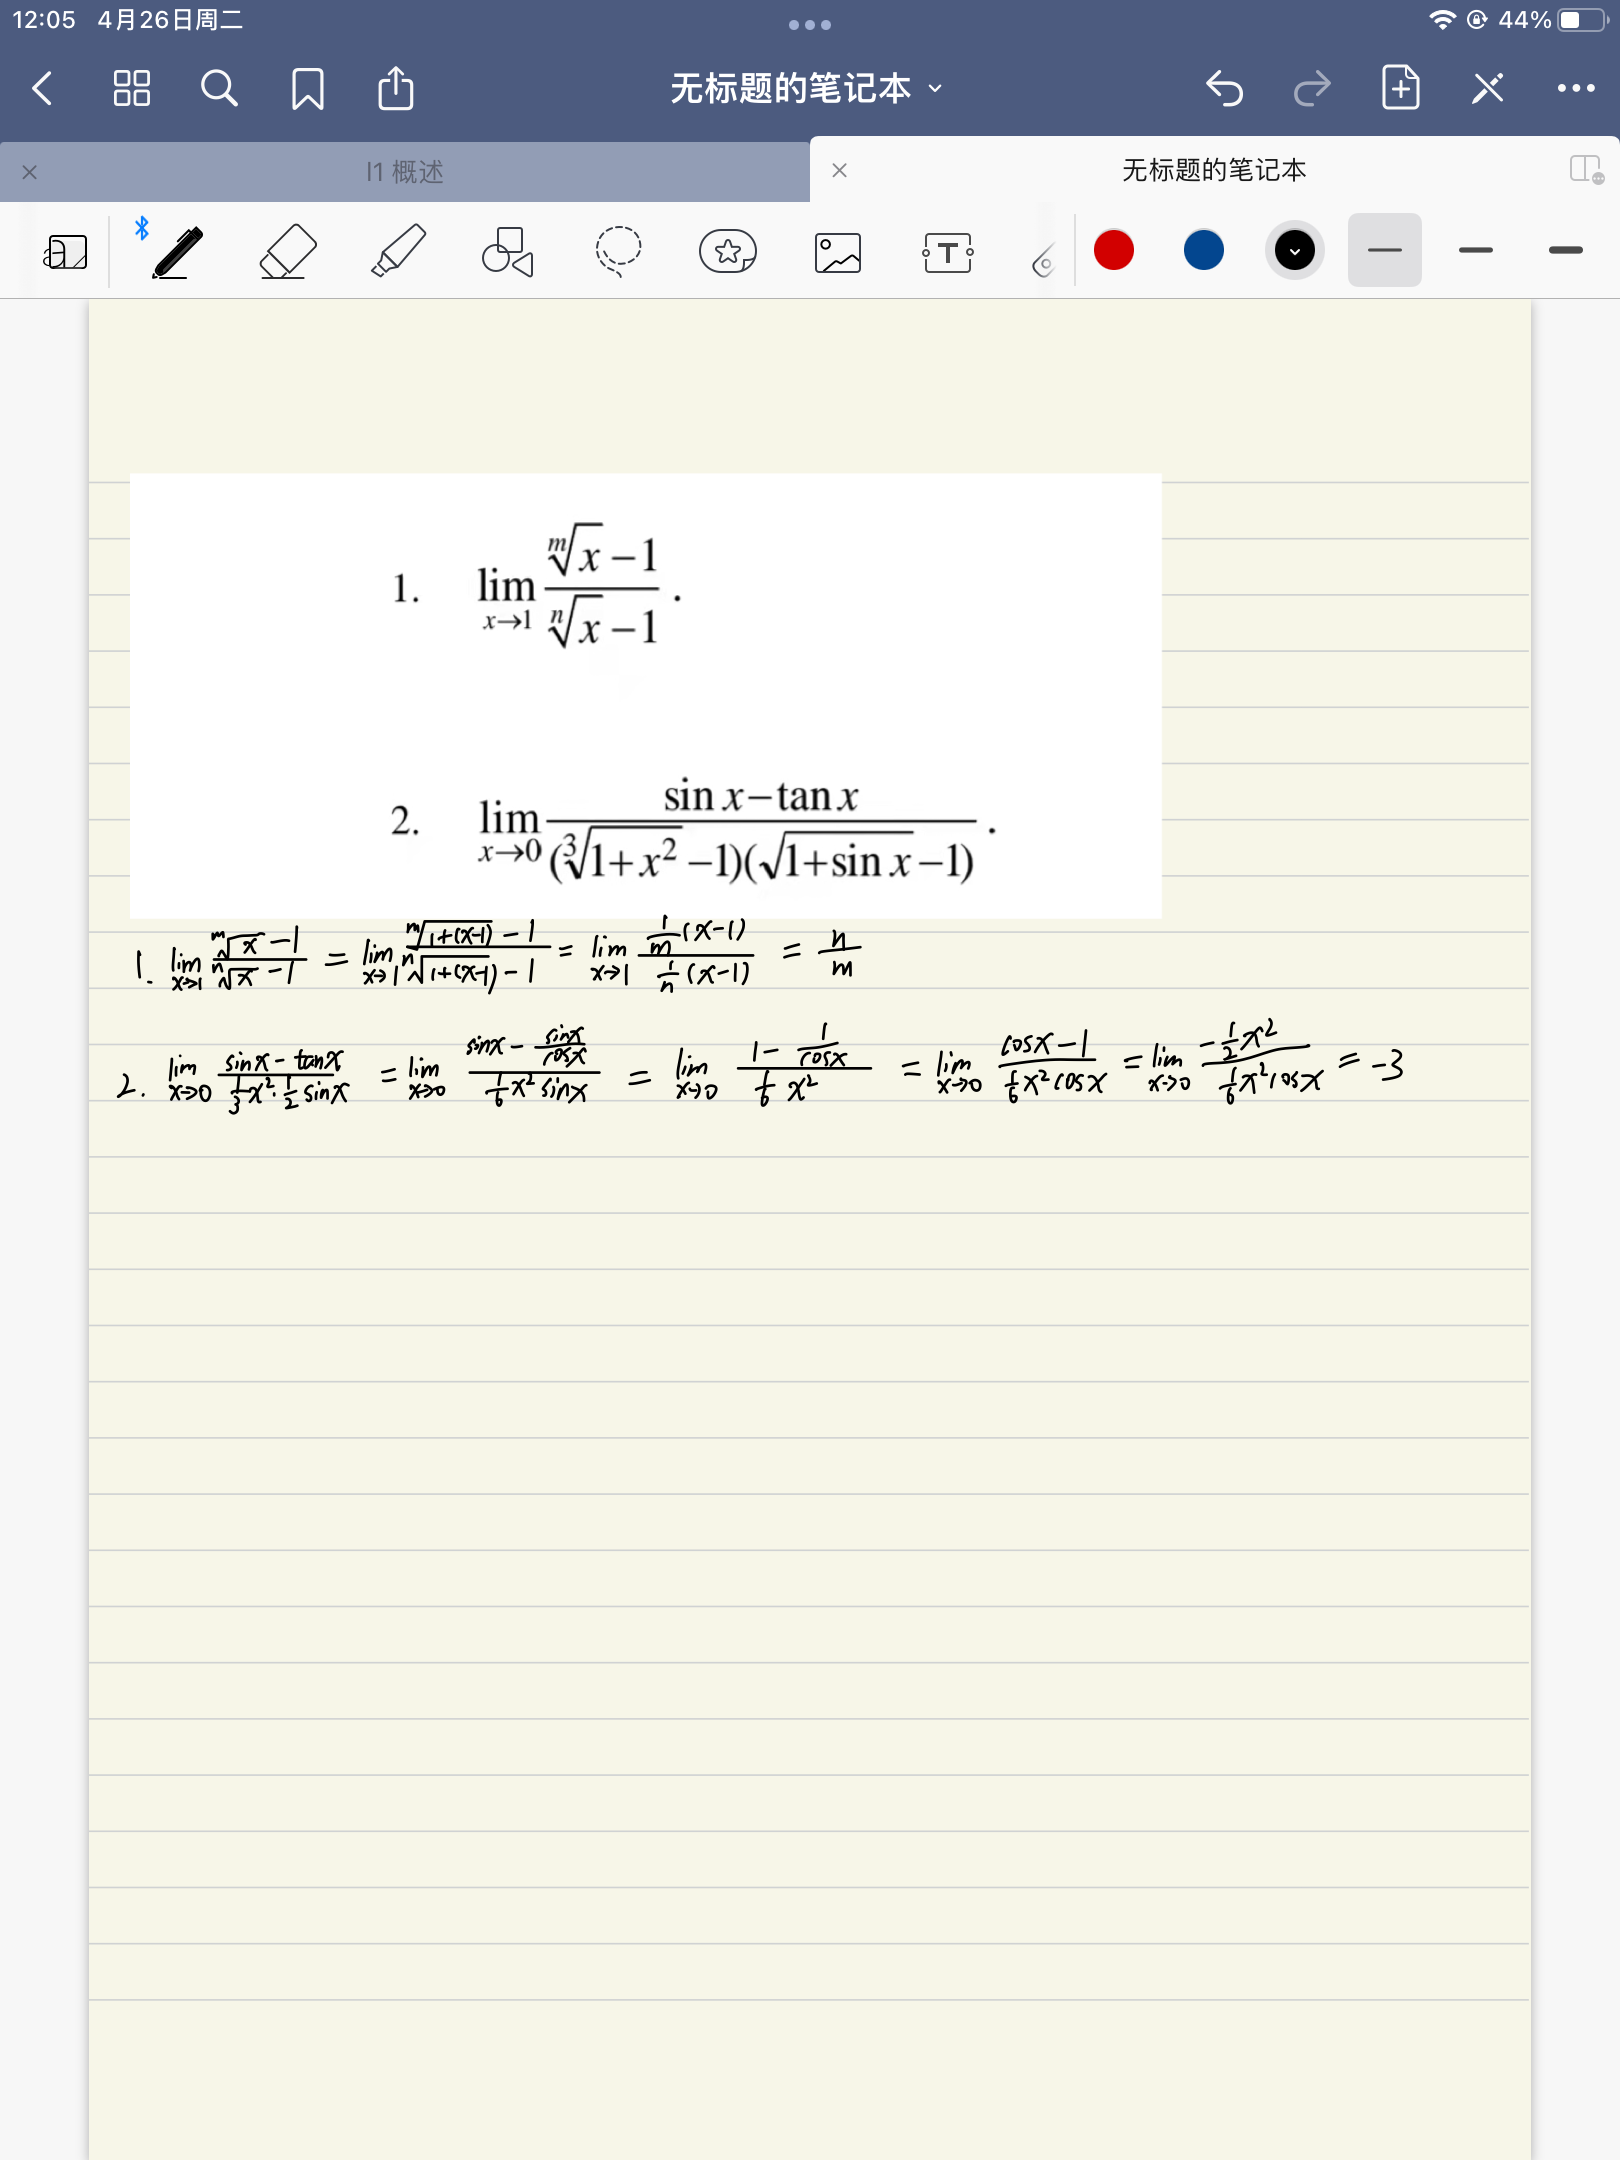 12:05 4月26日周二 44%
无标题的笔记本
l1 概述 无标题的笔记本
1. lim x→1 (ᵐ√x −1)/(ⁿ√x −1) .
2. lim x→0 (sin x−tan x)/((³√(1+x²) −1)(√(1+sin x) −1)) .
1. lim x→1 (ᵐ√x −1)/(ⁿ√x −1) = lim x→1 (ᵐ√(1+(x-1)) − 1)/(ⁿ√(1+(x-1)) − 1) = lim x→1 (1/m (x−1))/(1/n (x−1)) = n/m
2. lim x→0 (sinx − tanx)/(1/3 x² · 1/2 sinx) = lim x→0 (sinx − sinx/cosx)/(1/6 x² sinx) = lim x→0 (1 − 1/cosx)/(1/6 x²) = lim x→0 (cosx − 1)/(1/6 x² cosx) = lim x→0 (−1/2 x²)/(1/6 x² cosx) = −3